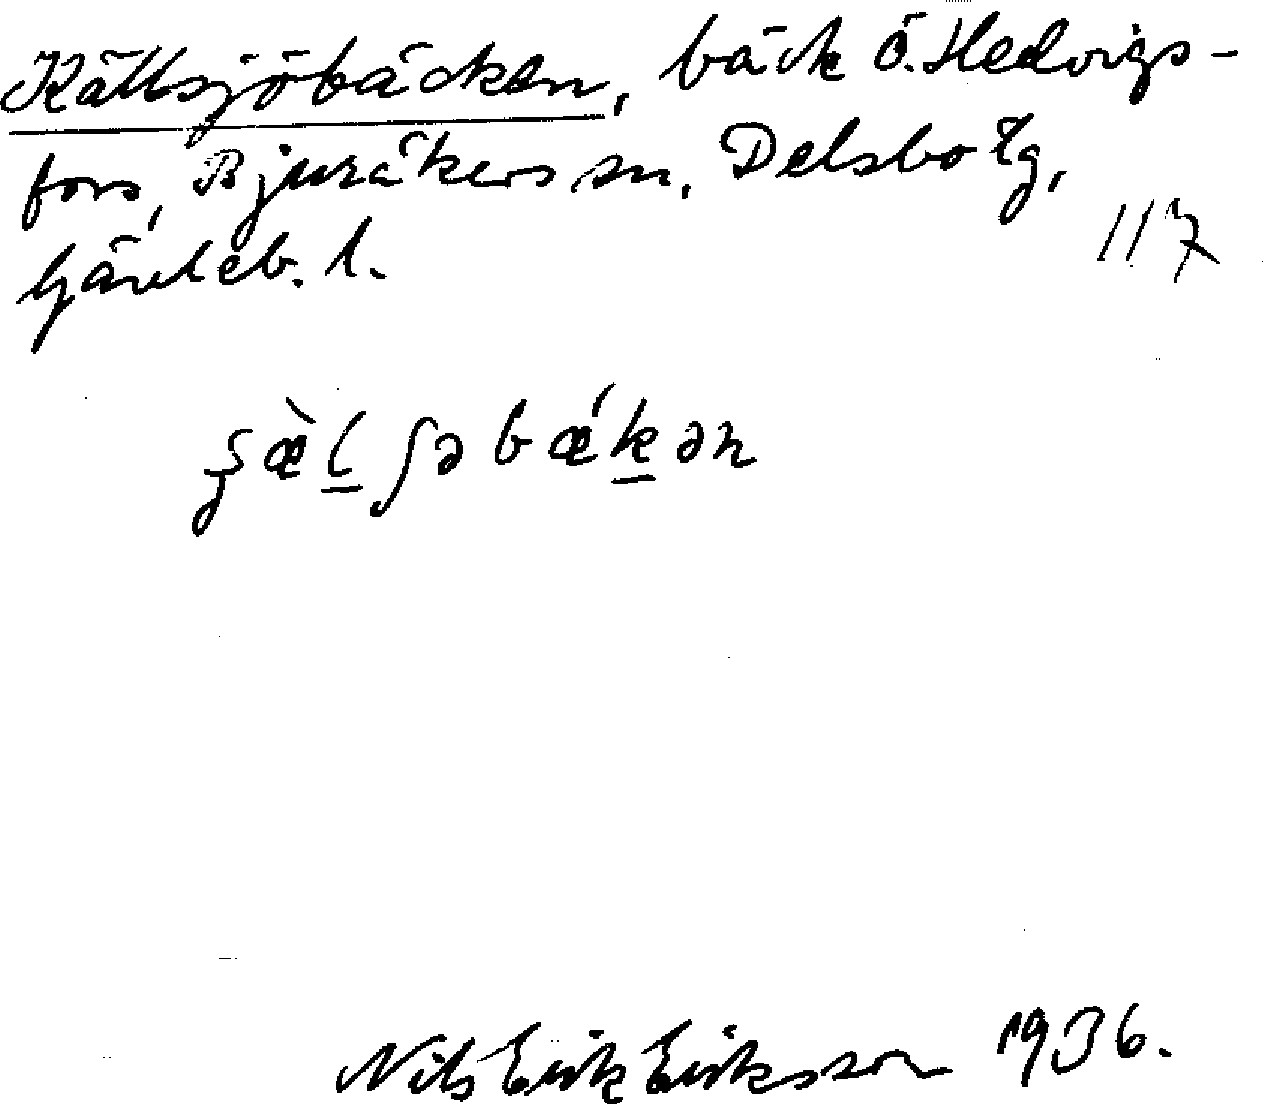 Källsjöbäcken, bäck Ö. Hedvigs-
fors, Bjuråkers sn, Delsbo tg,
Gävleb. l.
117
Nils Erik Eriksson 1936.